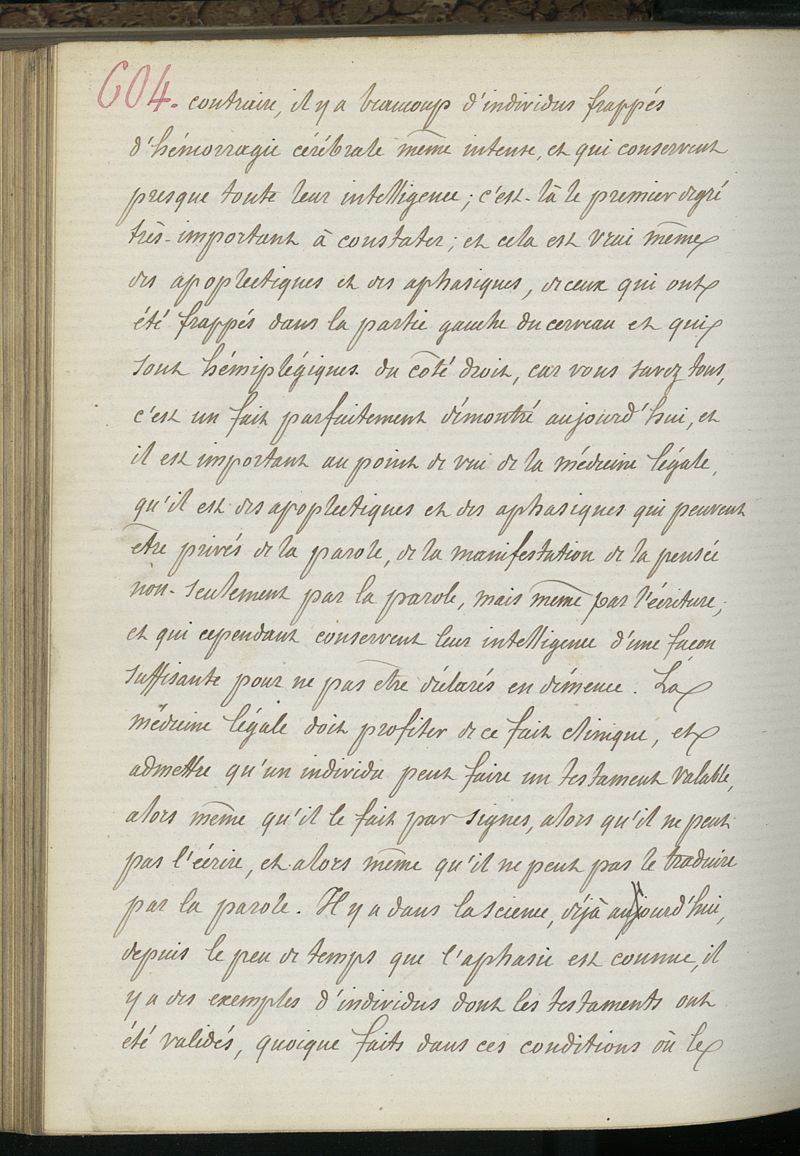 604. contraire, il y a beaucoup d'individus frappés
d'hémorragie cérébrale même intense, et qui conservent
presque toute leur intelligence; c'est-là le premier degré
très-important à constater; et cela est vrai même
des apoplectiques et des aphasiques, de ceux qui ont
été frappés dans la partie gauche du cerveau et qui
sont hémiplégiques du côté droit, car vous savez tous,
c'est un fait parfaitement démontré aujourd'hui, et
il est important au point de vue de la médecine légale,
qu'il est des apoplectiques et des aphasiques qui peuvent
être privés de la parole, de la manifestation de la pensée
non-seulement par la parole, mais même par l'écriture;
et qui cependant conservent leur intelligence d'une façon
suffisante pour ne pas être déclarés en démence. La
médecine légale doit profiter de ce fait clinique, et
admettre qu'un individu peut faire un testament valable,
alors même qu'il le fait par signes, alors qu'il ne peut
pas l'écrire, et alors même qu'il ne peut pas le traduire
par la parole. Il y a dans la science, déjà aujourd'hui,
depuis le peu de temps que l'aphasie est connue, il
y a des exemples d'individus dont les testaments ont
été validés, quoique faits dans ces conditions où le